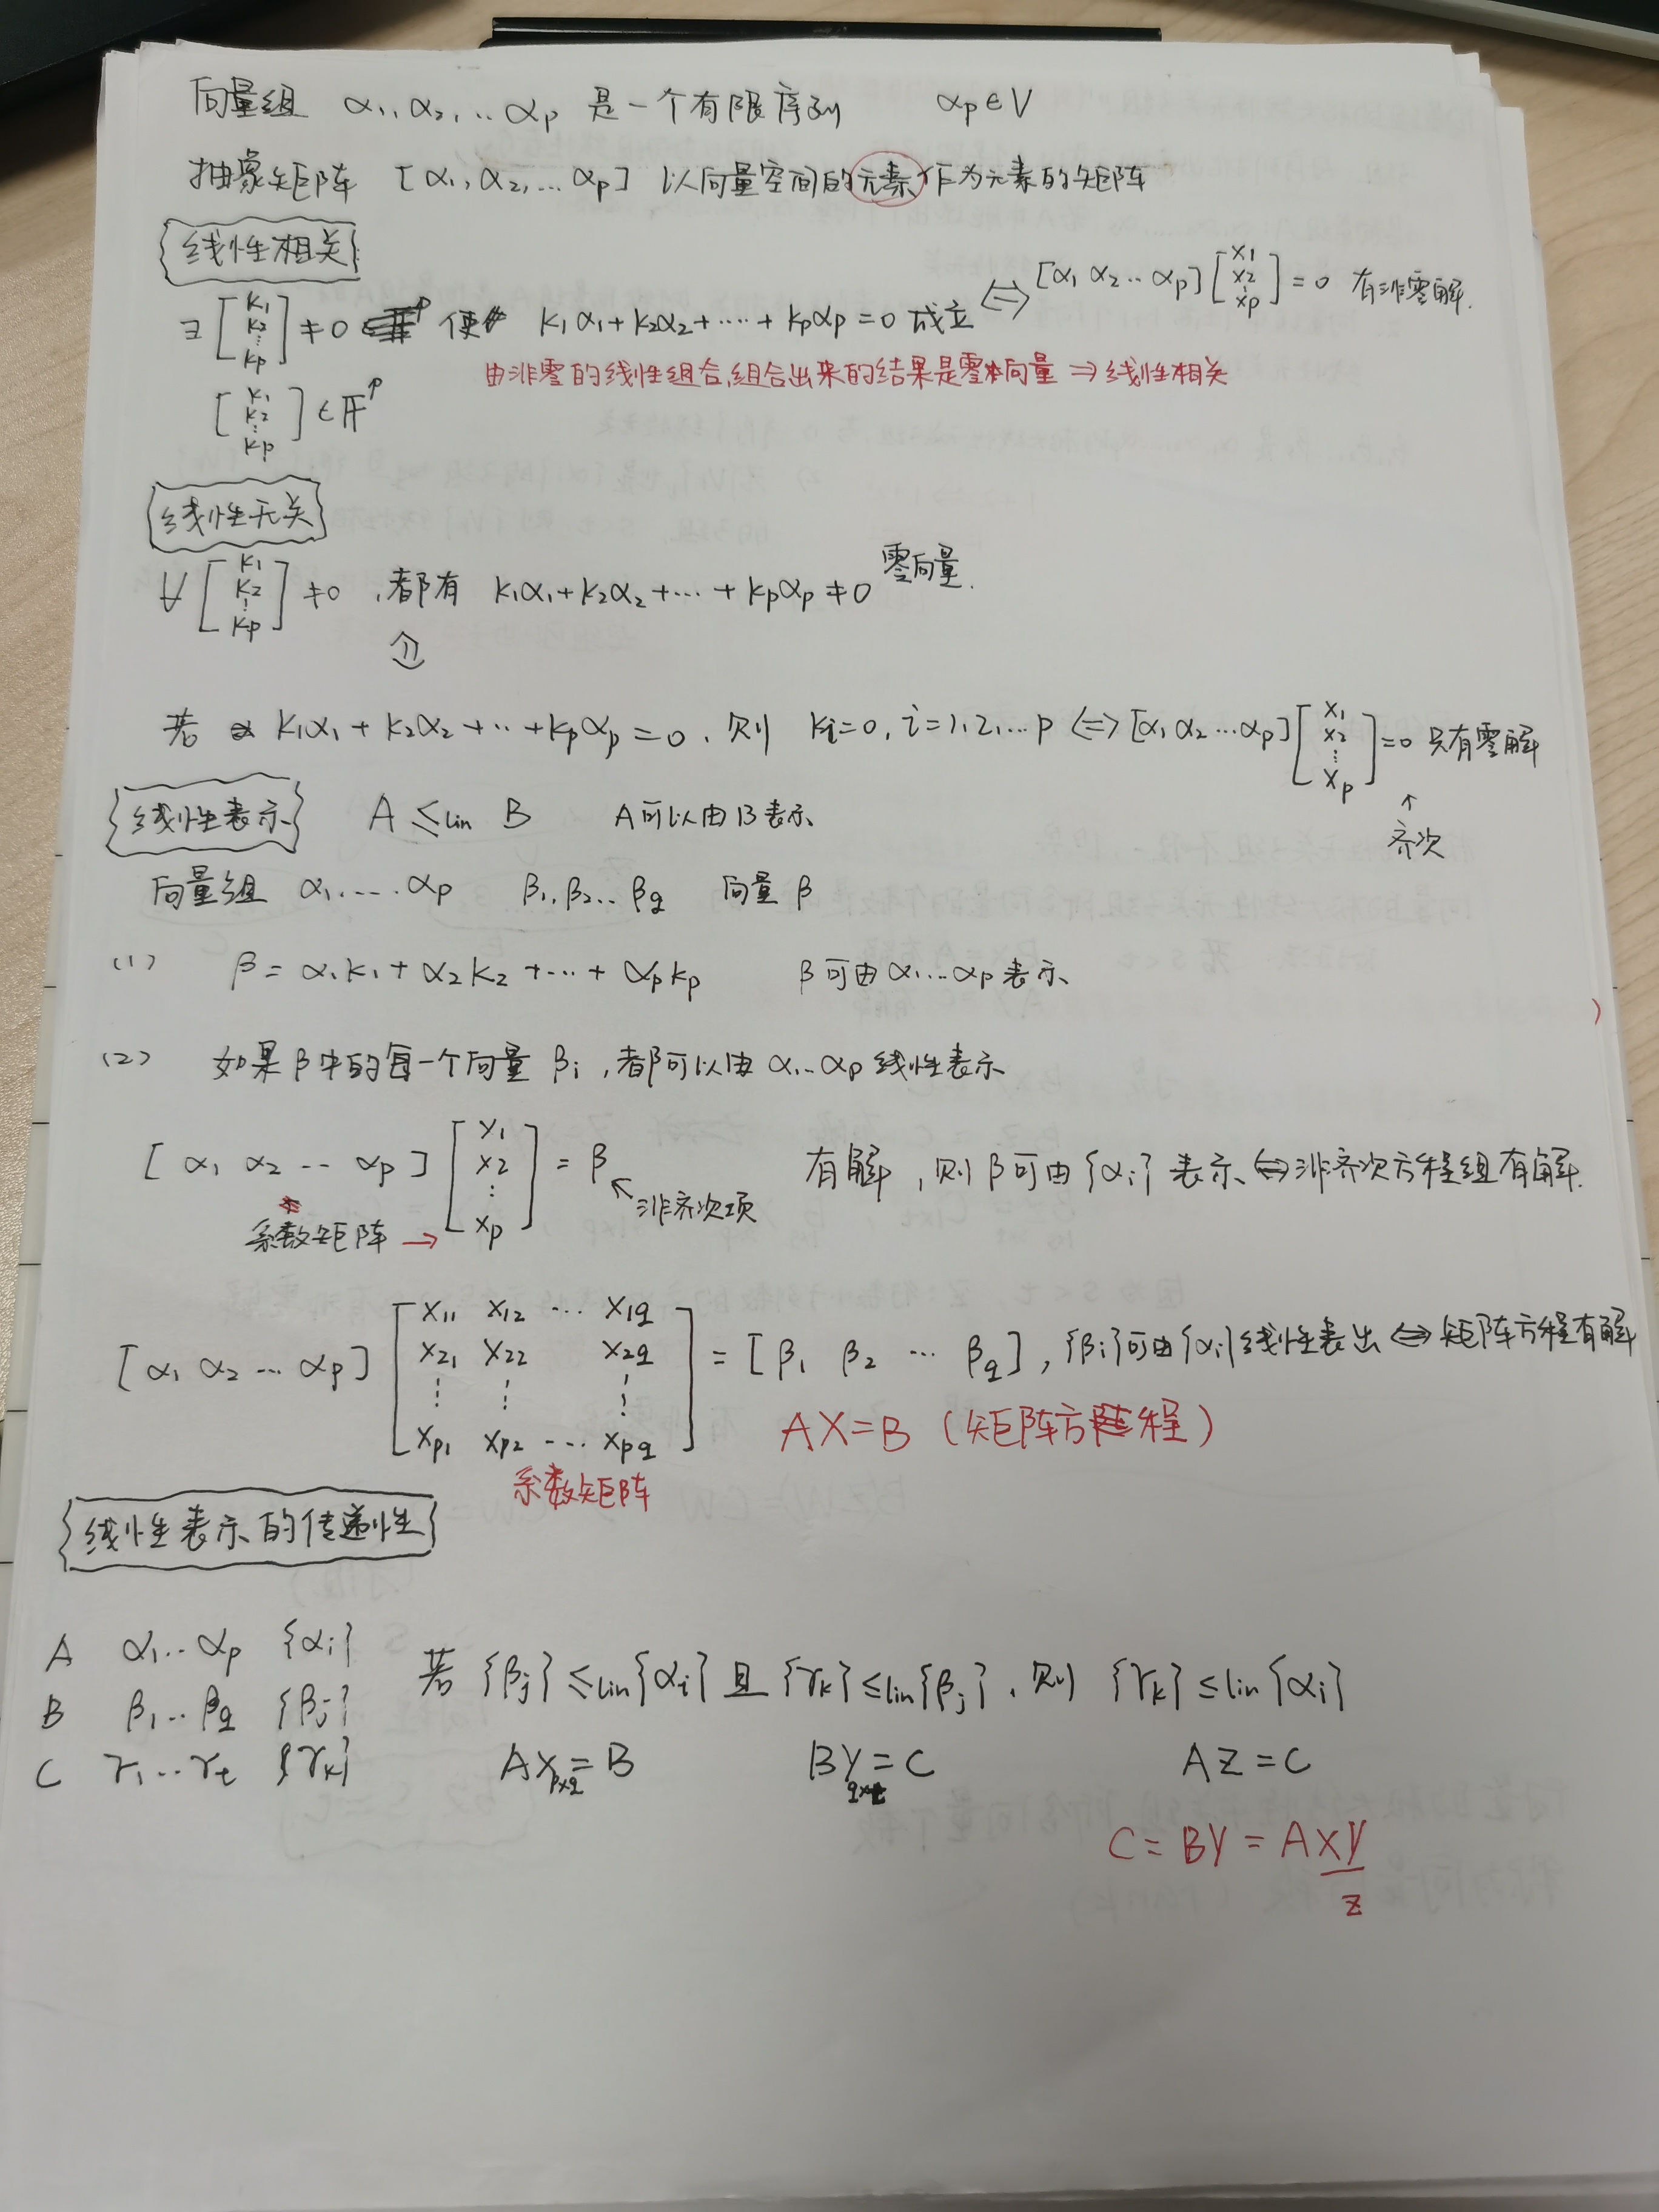 向量组 α₁, α₂, … αp 是一个有限序列 αp∈V
抽象矩阵 [α₁, α₂, … αp] 以向量空间的元素作为元素的矩阵
线性相关
∃ [k₁ k₂ ⋮ kp] ≠0 使 k₁α₁+k₂α₂+……+kpαp=0 成立 ⇔ [α₁ α₂ … αp] [x₁ x₂ ⋮ xp] =0 有非零解.
由非零的线性组合,组合出来的结果是零向量 ⇒ 线性相关
[k₁ k₂ ⋮ kp] ∈ 𝔽ᵖ
线性无关
∀ [k₁ k₂ ⋮ kp] ≠0 , 都有 k₁α₁+k₂α₂+…+kpαp≠0 零向量.
⇕
若 k₁α₁+k₂α₂+…+kpαp=0, 则 ki=0, i=1,2,…p ⇔ [α₁ α₂ … αp] [x₁ x₂ ⋮ xp] =0 只有零解
↑
齐次
线性表示 A ≤lin B A可以由B表示
向量组 α₁…αp β₁,β₂…βq 向量 β
(1) β=α₁k₁+α₂k₂+…+αpkp β可由α₁…αp表示
(2) 如果β中的每一个向量βi, 都可以由α₁…αp线性表示
[α₁ α₂ … αp] [x₁ x₂ ⋮ xp] = β ↖非齐次项 有解, 则β可由{αi}表示⇔非齐次方程组有解.
系数矩阵 →
[α₁ α₂ … αp] [x₁₁ x₁₂ … x₁q
x₂₁ x₂₂ x₂q
⋮ ⋮ ⋮
xp₁ xp₂ … xpq] = [β₁ β₂ … βq], {βi}可由{αi}线性表出 ⇔ 矩阵方程有解
AX=B (矩阵方程)
系数矩阵
线性表示的传递性
A α₁…αp {αi}
B β₁…βq {βj}
C γ₁…γt {γk}
若 {βj} ≤lin {αi} 且 {γk} ≤lin {βj}, 则 {γk} ≤lin {αi}
AX=B BY=C AZ=C
p×q q×t
C=BY=AXY
Z